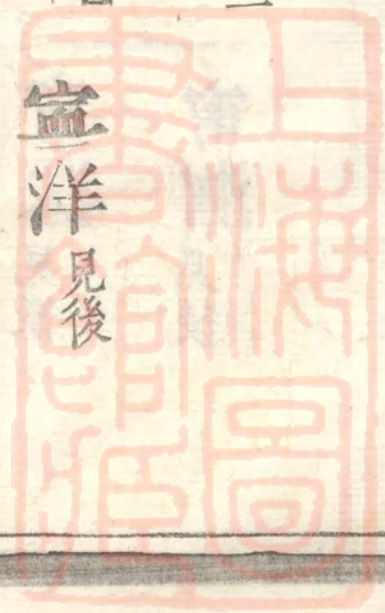 寍洋見後
上海圖書館藏